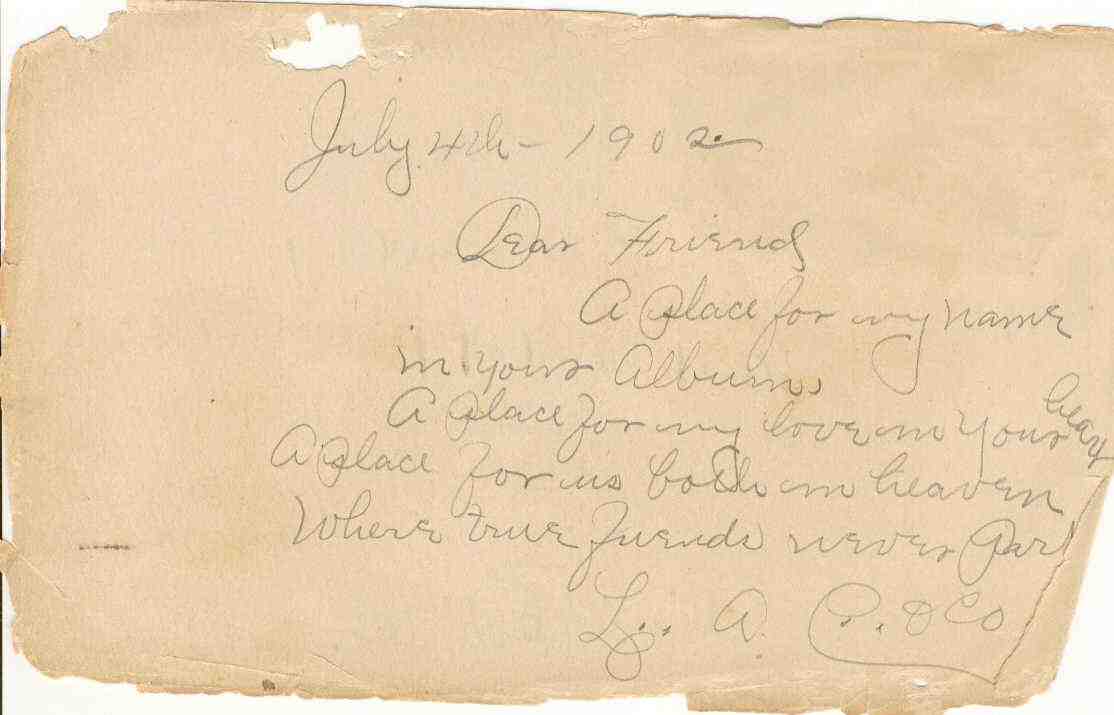 July 4th - 1902
Dear Friend
A place for my name
in your Album,
A place for my love in your heart
A place for us both in heaven
Where true friends never Part
L. A. C. & Co